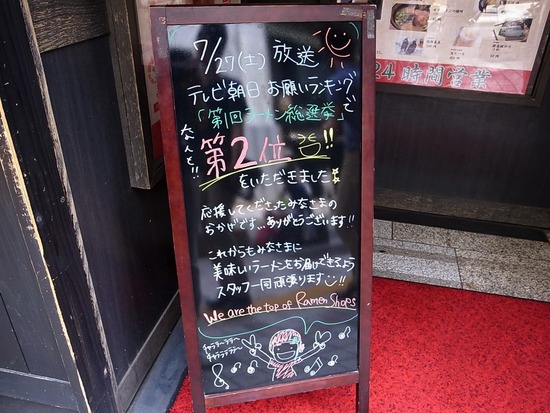 7/27(土) 放送
テレビ朝日 お願いランキング
「第1回ラーメン総選挙」で
なんと!!
第2位!!
をいただきました
応援してくださったみなさまの
おかげです…ありがとうございます!!
これからもみなさまに
美味しいラーメンをお届けできるよう
スタッフ一同頑張ります!!
We are the top of Ramen Shops
24時間営業